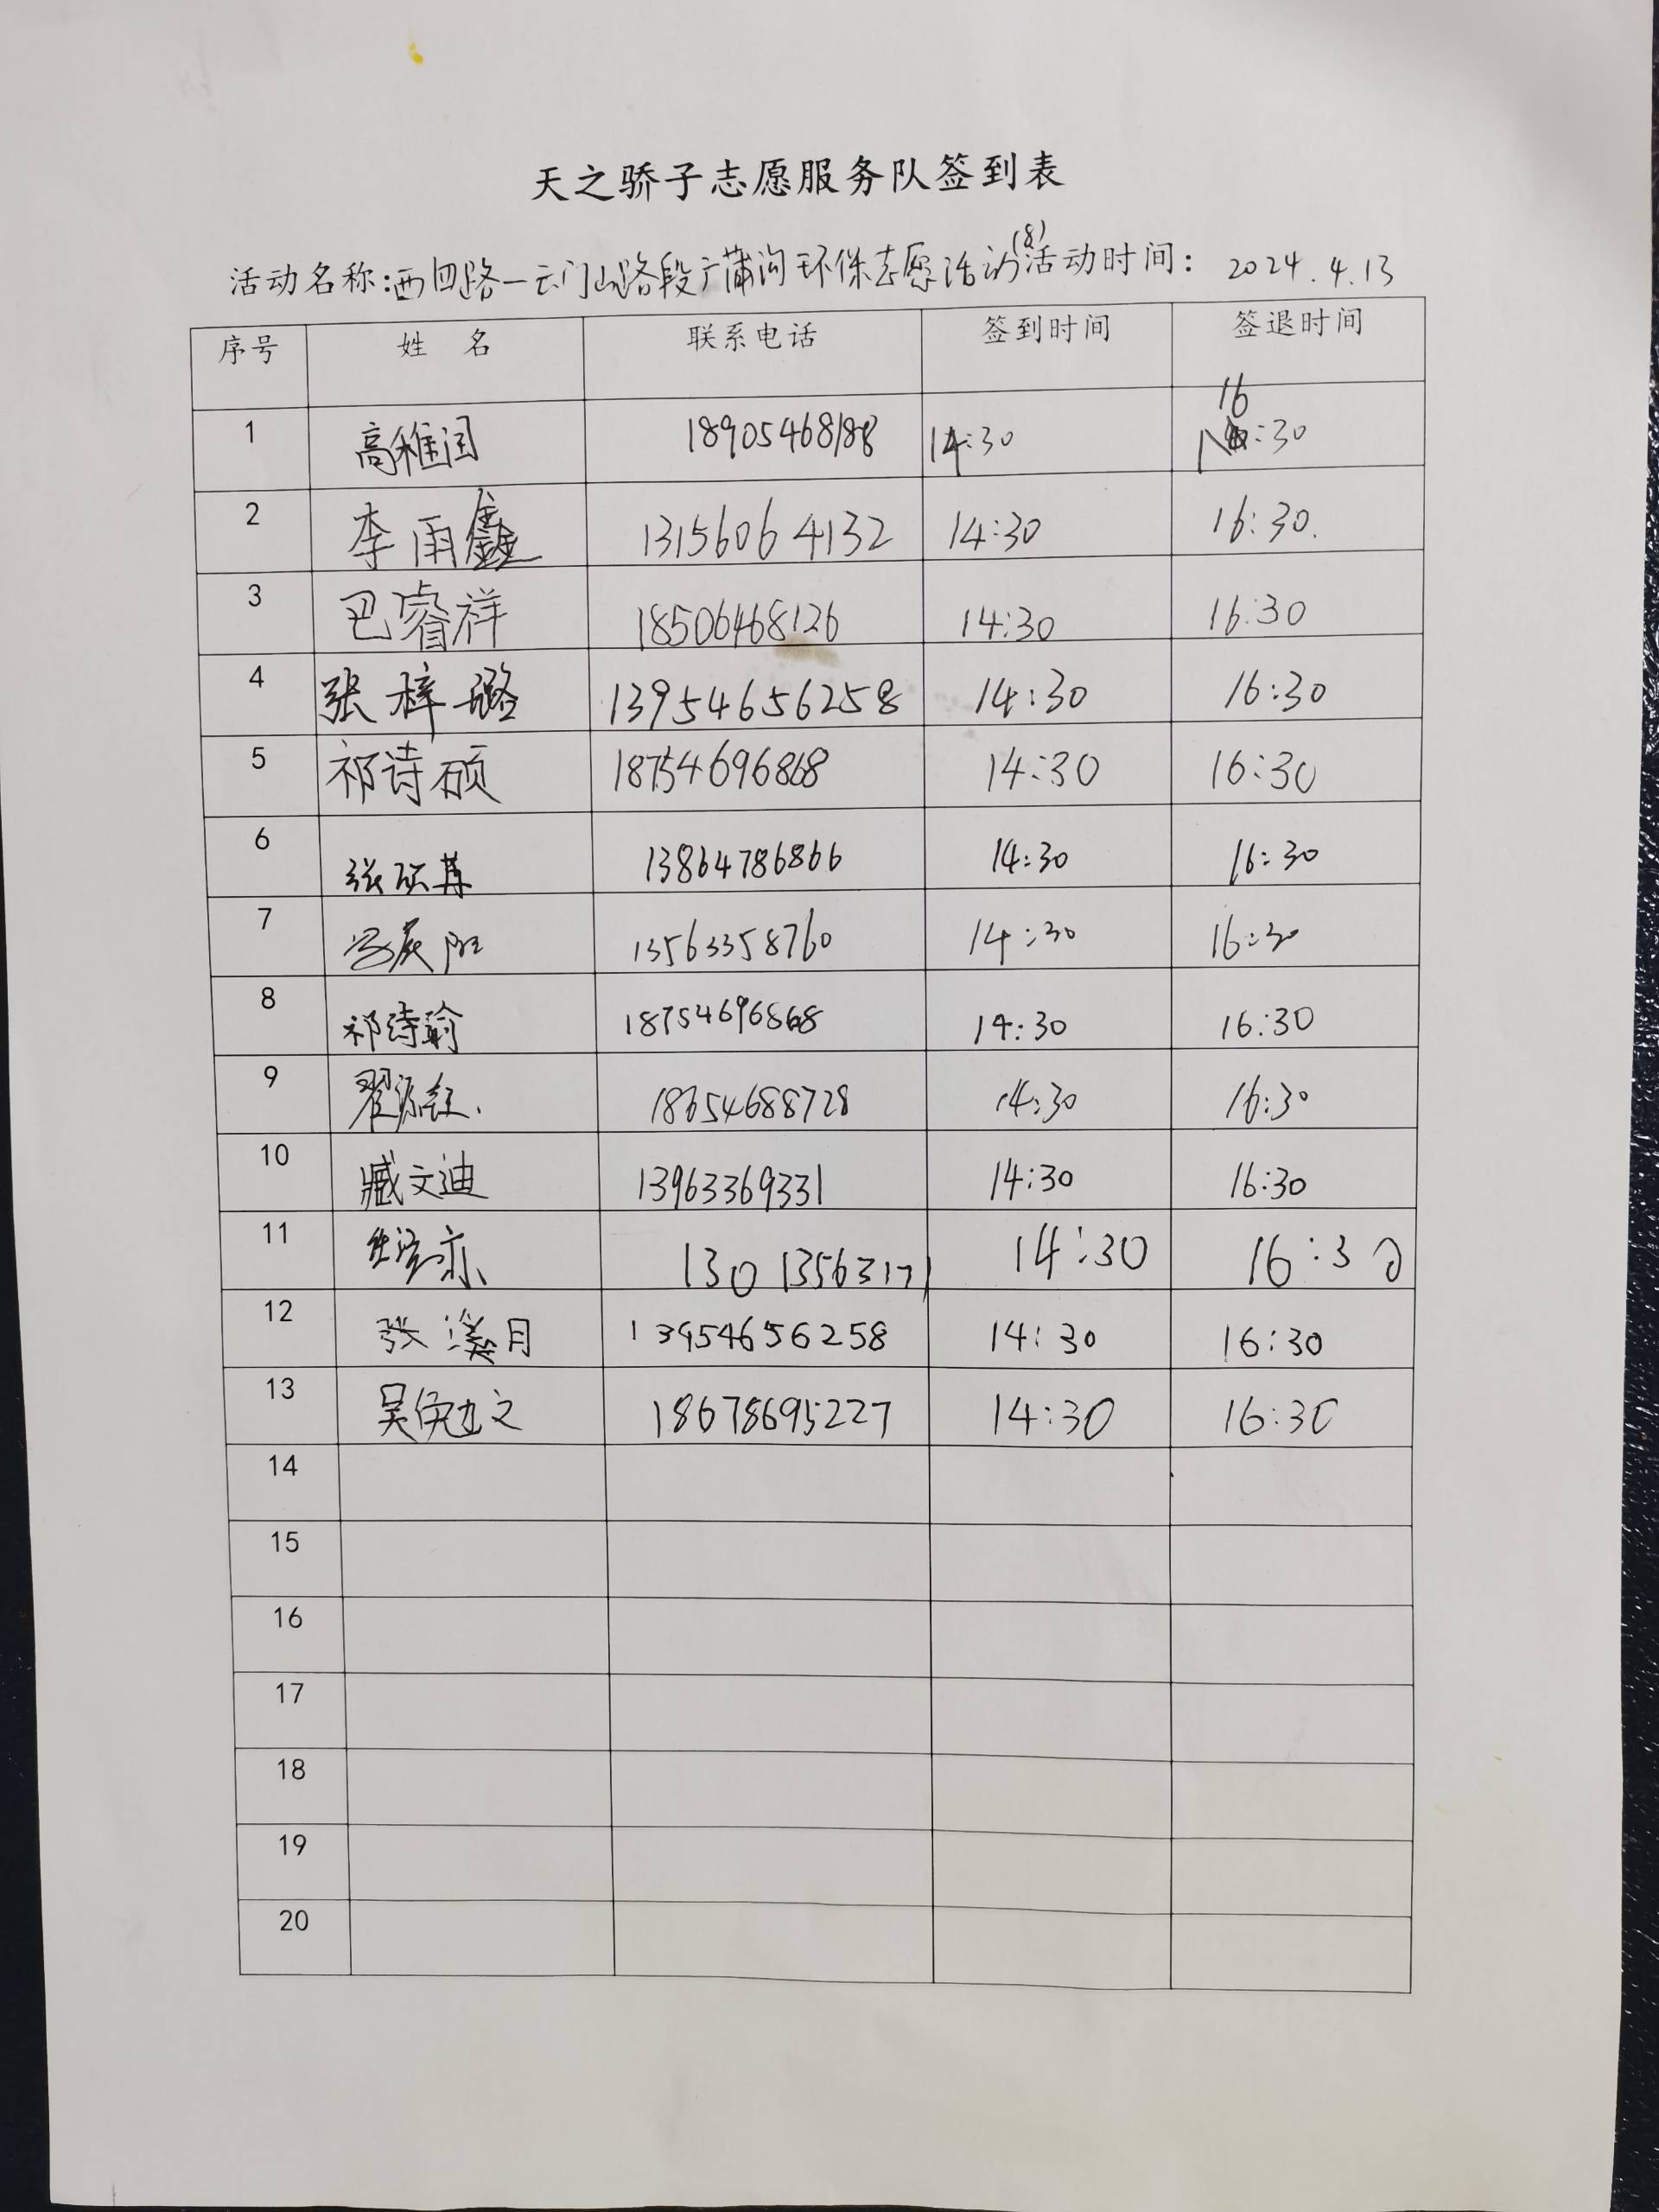 天之骄子志愿服务队签到表
活动名称:西四路一云门山路段广蒲沟环保志愿活动(8) 活动时间: 2024.4.13
序号 姓 名 联系电话 签到时间 签退时间
1 高稚闰 18905468188 14:30 16:30
2 李雨鑫 13156064132 14:30 16:30.
3 巴睿祥 18506468126 14:30 16:30
4 张梓璐 13954656258 14:30 16:30
5 祁诗硕 18754696868 14:30 16:30
6 张硕 13864786866 14:30 16:30
7 13563358760 14:30 16:30
8 祁诗瑜 18754696868 14:30 16:30
9 翟源 18654688728 14:30 16:30
10 臧文迪 13963369331 14:30 16:30
11 13013563171 14:30 16:30
12 张溪月 13954656258 14:30 16:30
13 吴勉文 18678695227 14:30 16:30
14
15
16
17
18
19
20